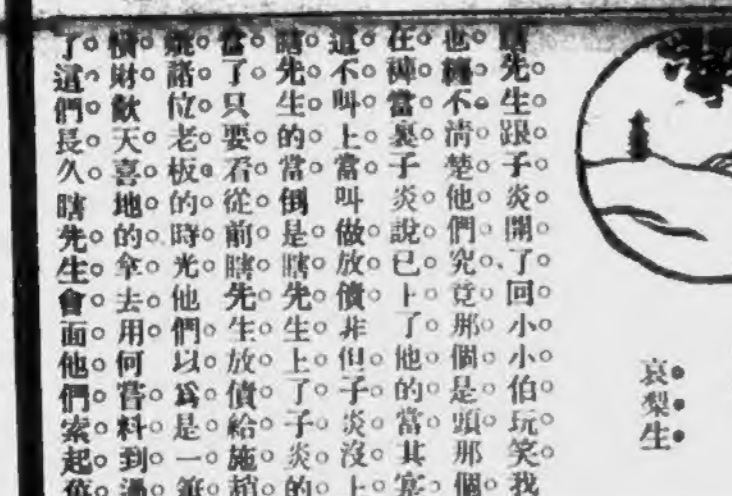 哀梨生
瞎先生跟子炎開了回小小伯玩笑我
也纏不清楚他們究竟那個是頭那個
在褲當裏子炎說已上了他的當其寔
這不叫上當叫做放債非但子炎沒上
瞎先生的當倒是瞎先生上了子炎的
當了只要看從前瞎先生放債給施趙
諸位老板的時光他們以爲是一筆
橫財歡天喜地的拿去用何嘗料到過
了這們長久瞎先生會面他們索起